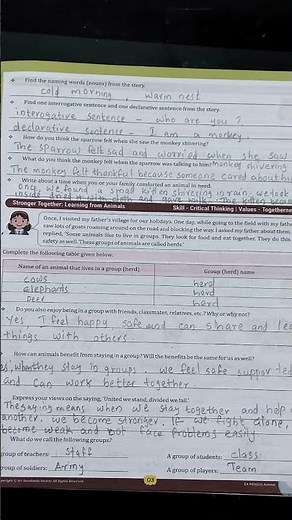 Find the naming words (nouns) from the story.
cold morning warm nest
Find one interrogative sentence and one declarative sentence from the story.
interogative sentence - who are you ?
declarative sentence - I am a monkey.
How do you think the sparrow felt when she saw the monkey shivering?
The sparrow felt sad and worried when she saw
monkey shivering
What do you think the monkey felt when the sparrow was talking to him?
The monkey felt thankful because someone cared about him
Write about a time when you or your family comforted an animal in need.
one, we found a small kitten shivering in rain, we took
inside
Stronger Together: Learning from Animals Skill - Critical Thinking | Values - Togetherne
Once, I visited my father's village for our holidays. One day, while going to the field with my fathe
saw lots of goats roaming around on the road and blocking the way. I asked my father about them.
replied, 'Some animals like to live in groups. They look for food and eat together. They do this
safety as well. These groups of animals are called herds.'
Complete the following table given below.
Name of an animal that lives in a group (herd) Group (herd) name
cows herd
elephants herd
Deer herd
Do you also enjoy being in a group with friends, classmates, relatives, etc.? Why or why not?
Yes I feel happy safe and can share and lea
things with others
How can animals benefit from staying in a group? Will the benefits be the same for us as well?
when they stay in groups. we feel safe supported
and can work better together
Express your views on the saying, 'United we stand, divided we fall.'
The saying means when we stay together and help
another. we become stronger. If we fight alone,
become weak and face problems easily
What do we call the following groups?
group of teachers: Staff A group of students: class
group of soldiers: Army A group of players: Team